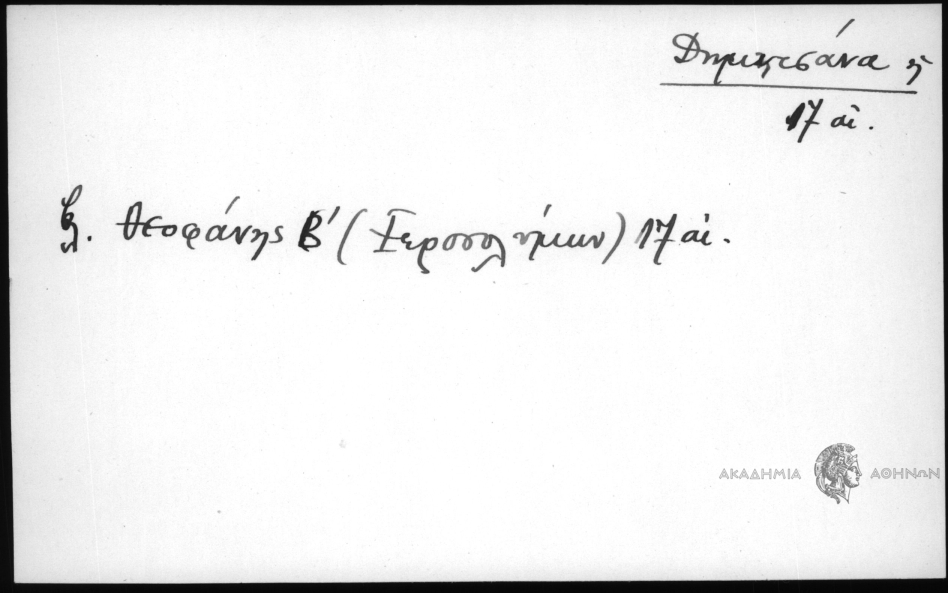 Δημητσάνα ἡ
17 αἰ.
βλ. Θεοφάνης Β΄ (Ἱεροσολύμων) 17 αἰ.
ΑΚΑΔΗΜΙΑ ΑΘΗΝΩΝ